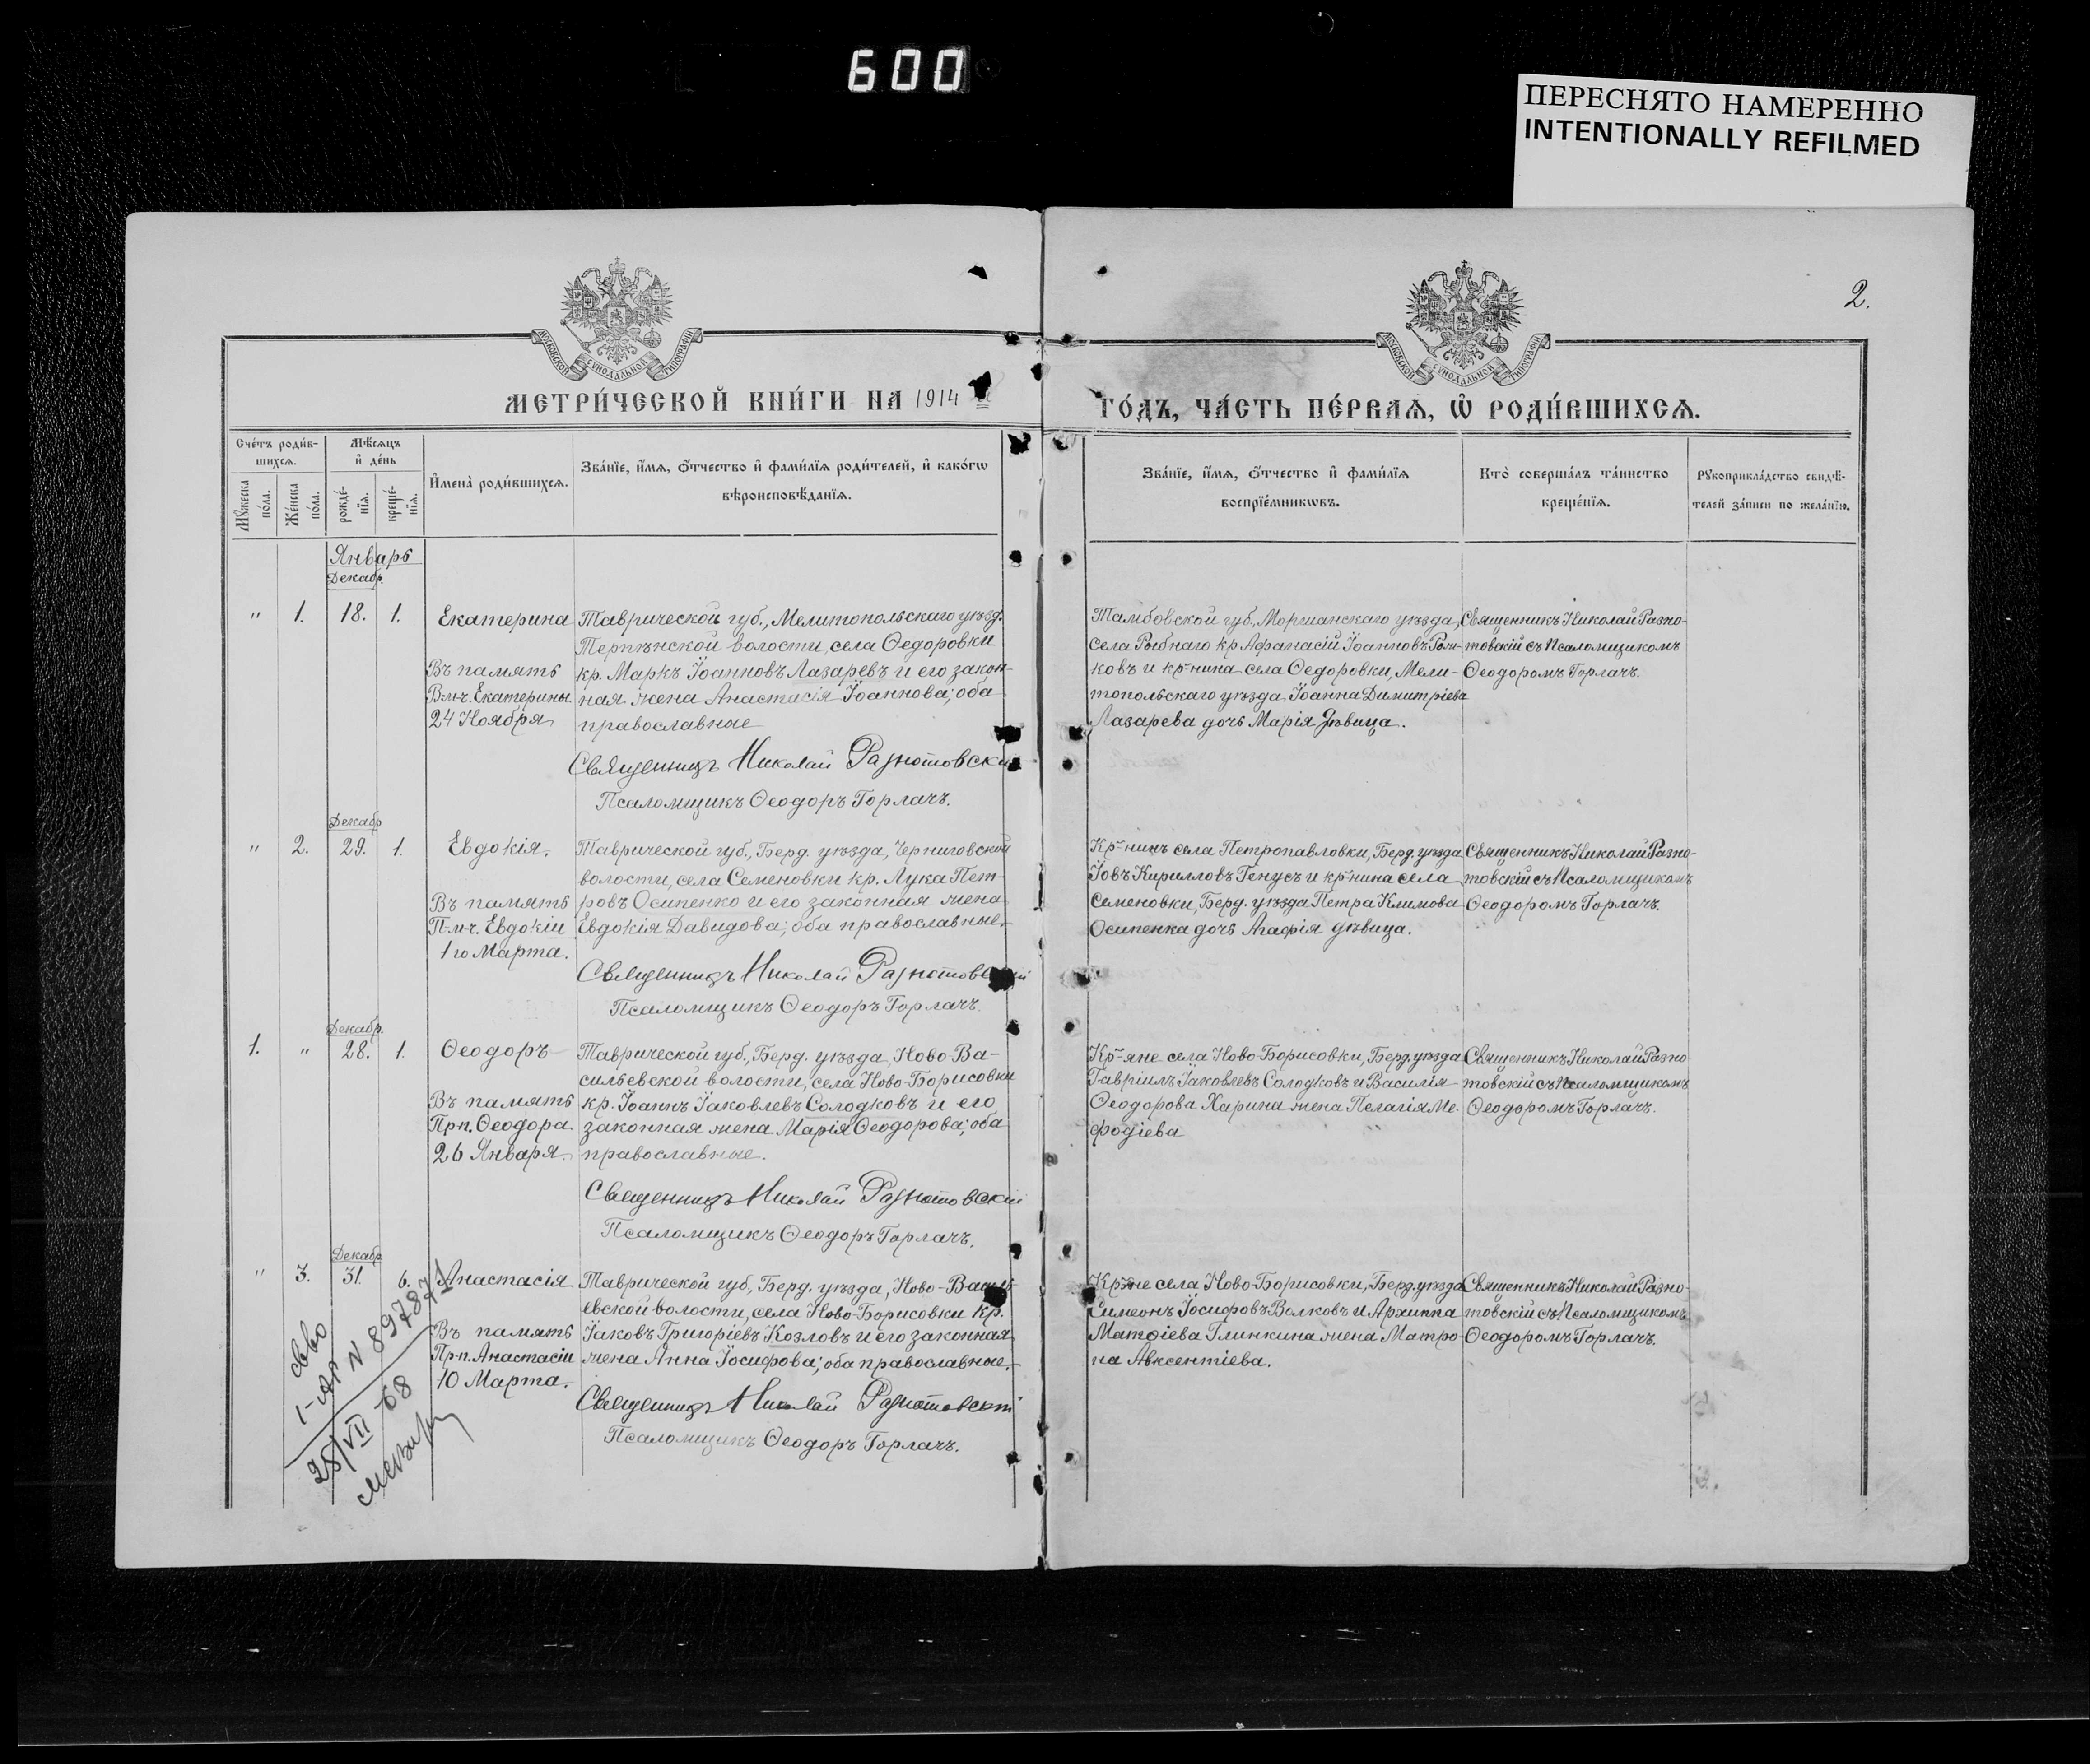 600
ПЕРЕСНЯТО НАМЕРЕННО
INTENTIONALLY REFILMED
2.
МОСКОВСКОЙ СѴНОДАЛЬНОЙ ТИПОГРАФІИ
МОСКОВСКОЙ СѴНОДАЛЬНОЙ ТИПОГРАФІИ
МЕТРИ́ЧЕСКОЙ КНИ́ГИ НА 1914
ГО́ДЪ, ЧА́СТЬ ПЕ́РВАѦ, Ѡ҆ РОДИ́ВШИХСѦ.
Сче́тъ роди́в-
шихсѧ.
Мѣ́сѧцъ
и҆ де́нь
Мꙋ́жеска
по́ла.
Же́нска
по́ла.
рожде́-
нїѧ.
креще́-
нїѧ.
И҆мена̀ роди́вшихсѧ.
Зва́нїе, и҆́мѧ, ѻ҆́тчество и҆ фами́лїѧ роди́телей, и҆ како́гѡ
вѣроисповѣ́данїѧ.
Зва́нїе, и҆́мѧ, ѻ҆́тчество и҆ фами́лїѧ
воспрїе́мникѡвъ.
Кто̀ соверша́лъ та́инство
креще́нїѧ.
Рꙋкоприкла́дство свидѣ́-
телей за́писи по жела́нїю.
Январь
Декабр.
" 1. 18. 1.
Екатерина
Въ память
Вмч. Екатерины
24 Ноября
Таврической губ., Мелитопольскаго уѣзд.
Терпѣнской волости, села Ѳедоровки
кр. Маркъ Іоанновъ Лазаревъ и его закон-
ная жена Анастасія Іоаннова; оба
православные
Священникъ Николай Разнотовскій
Псаломщикъ Ѳеодоръ Горлачъ.
Тамбовской губ., Моршанскаго уѣзда,
села Рыбнаго кр. Афанасій Іоанновъ
ковъ и кр-нина села Ѳедоровки, Мели-
топольскаго уѣзда Іоанна Димитріева
Лазарева дочь Марія дѣвица.
Священникъ Николай Разно-
товскій съ Псаломщикомъ
Ѳеодоромъ Горлачъ.
Декабр
" 2. 29. 1.
Евдокія.
Въ память
П-мч. Евдокіи
1го Марта.
Таврической губ., Берд. уѣзда, Черниговской
волости, села Семеновки кр. Лука Пет-
ровъ Осипенко и его законная жена
Евдокія Давидова; оба православные.
Священникъ Николай Разнотовскій
Псаломщикъ Ѳеодоръ Горлачъ.
Кр-нинъ села Петропавловки, Берд. уѣзда
Іовъ Кирилловъ Генусъ и кр-нина села
Семеновки, Берд. уѣзда Петра Климова
Осипенка дочь Агафія дѣвица.
Священникъ Николай Разно-
товскій съ Псаломщикомъ
Ѳеодоромъ Горлачъ.
Декабр.
1. " 28. 1.
Ѳеодоръ
Въ память
Прп. Ѳеодора
26 Января.
Таврической губ., Берд. уѣзда, Ново-Ва-
сильевской волости, села Ново-Борисовки
кр. Іоаннъ Іаковлевъ Солодковъ и его
законная жена Марія Ѳеодорова; оба
православные.
Священникъ Николай Разнотовскій
Псаломщикъ Ѳеодоръ Горлачъ.
Кр-яне села Ново-Борисовки, Берд. уѣзда
Гавріилъ Іаковлевъ Солодковъ и Василія
Ѳеодорова Харина жена Пелагія Ме-
фодіева
Священникъ Николай Разно
товскій съ Псаломщикомъ
Ѳеодоромъ Горлачъ.
Декабр
" 3. 31. 6.
Анастасія
Въ память
Прп. Анастасіи
10 Марта.
Таврической губ., Берд. уѣзда, Ново-Василь
евской волости, села Ново-Борисовки кр.
Іаковъ Григоріевъ Козловъ и его законная
жена Анна Іосифова; оба православные.
Священникъ Николай Разнотовскій
Псаломщикъ Ѳеодоръ Горлачъ.
Кр-яне села Ново-Борисовки, Берд. уѣзда
Симеонъ Іосифовъ Волковъ и Архиппа
Матѳіева Глинкина жена Матро-
на Авксентіева.
Священникъ Николай Разно-
товскій съ Псаломщикомъ
Ѳеодоромъ Горлачъ.
N 897871
25/VII 68